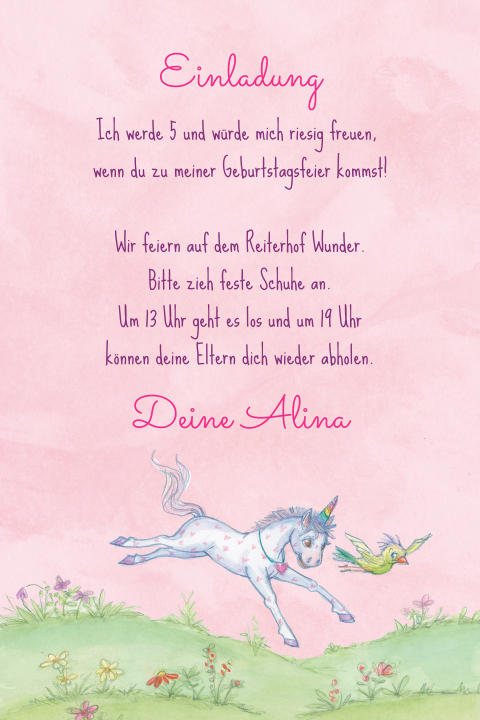 Einladung
Ich werde 5 und würde mich riesig freuen,
wenn du zu meiner Geburtstagsfeier kommst!
Wir feiern auf dem Reiterhof Wunder.
Bitte zieh feste Schuhe an.
Um 13 Uhr geht es los und um 19 Uhr
können deine Eltern dich wieder abholen.
Deine Alina